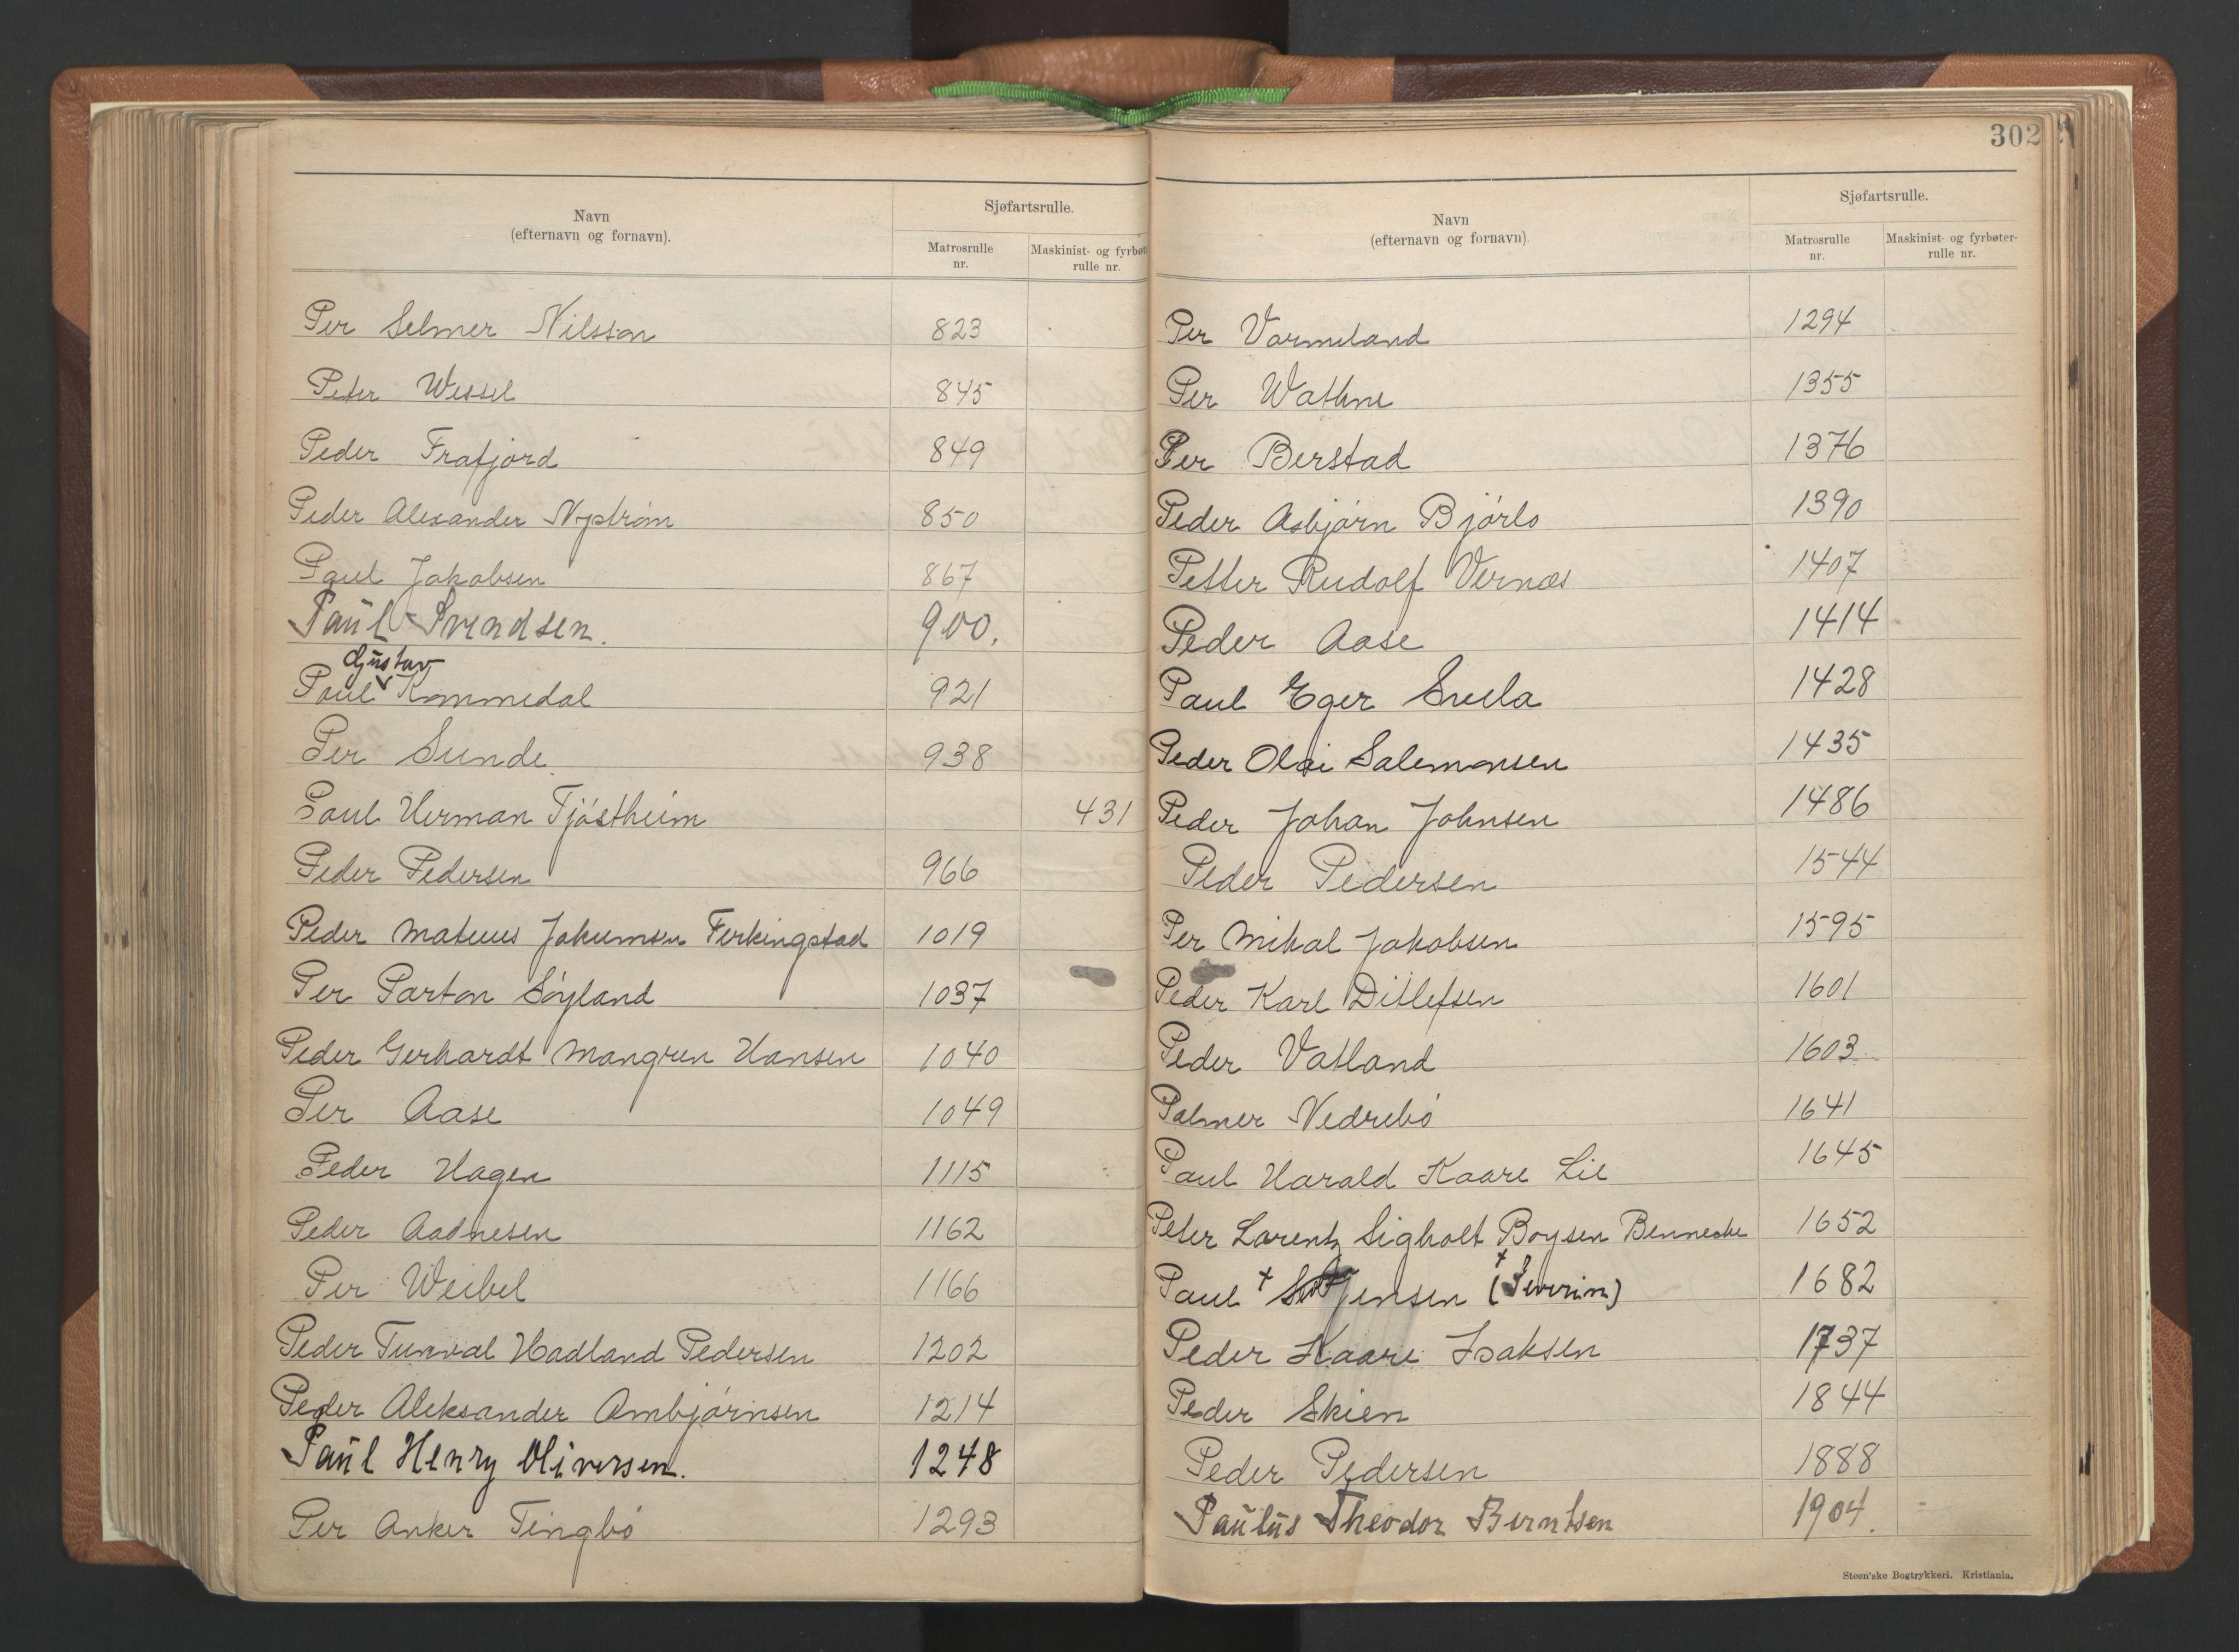 Navn
(efternavn og fornavn).
Sjøfartsrulle.
Matrosrulle nr.
Maskinist- og fyrbøt
rulle nr.
Per Selmer Nilsson 823
Peter Wessel 845
Peder Frafjord 849
Peder Alexander Nystrøm 850
Paul Jakobsen 867
Paul Svendsen. 900.
Gustav
Paul Kommedal 921
Per Sunde 938
Paul Herman Tjøstheim 431
Peder Pedersen 966
Peder Mateus Jokumsen Ferkingstad 1019
Per Parton Søyland 1037
Peder Gerhardt Mangren Hansen 1040
Per Aase 1049
Peder Hagen 1115
Peder Aadnesen 1162
Per Weibel 1166
Peder Tunval Hadland Pedersen 1202
Peder Aleksander Ambjørnsen 1214
Paul Henry Oliversen. 1248
Per Anker Tingbø 1293
302
Navn
(efternavn og fornavn).
Sjøfartsrulle.
Matrosrulle nr.
Maskinist- og fyrbøter-
rulle nr.
Per Varmeland 1294
Per Wathne 1355
Per Berstad 1376
Peder Asbjørn Bjørlo 1390
Petter Rudolf Vernæs 1407
Peder Aase 1414
Paul Eger Suela 1428
Peder Olai Salemonsen 1435
Peder Johan Johnsen 1486
Peder Pedersen 1544
Per Mikal Jakobsen 1595
Peder Karl Ditlefsen 1601
Peder Vatland 1603
Palmer Nedrebø 1641
Paul Harald Kaare Lie 1645
Peter Lorentz Sigholt Boysen Bennecke 1652
Paul + Jensen (+ Severin) 1682
Peder Kaare Isaksen 1737
Peder Skien 1844
Peder Pedersen 1888
Paulus Theodor Berntsen 1904.
Steen'ske Bogtrykkeri. Kristiania.